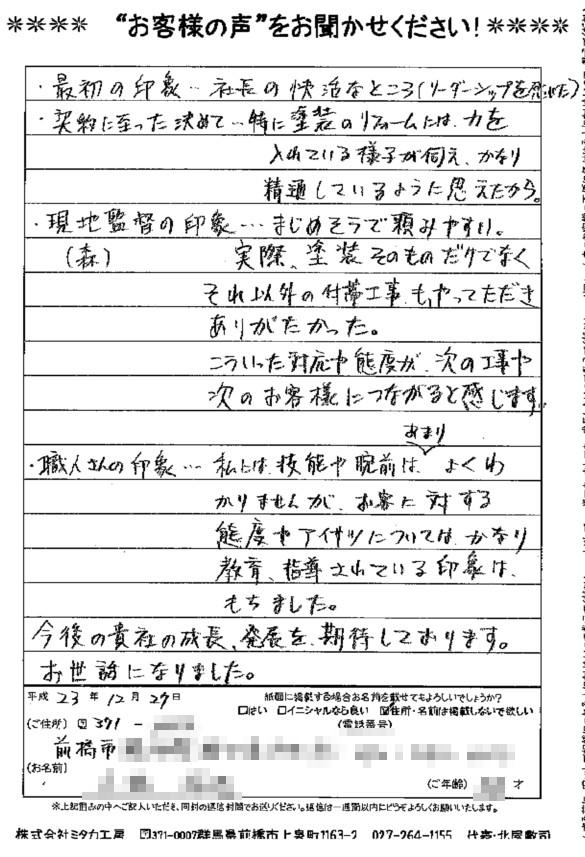 ＊＊＊＊ “お客様の声”をお聞かせください！＊＊＊＊
・最初の印象…社長の快活なところ(リーダーシップを感じた)
・契約に至った決めて…特に塗装のリフォームには、力を
入れている様子が伺え、かなり
精通しているように思えたから。
・現地監督の印象…まじめそうで頼みやすい。
(森) 実際、塗装そのものだけでなく
それ以外の付帯工事も、やってただき
ありがたかった。
こういった対応や態度が、次の工事や
次のお客様につながると感じます。
あまり
・職人さんの印象…私には、技能や腕前は よくわ
かりませんが、お客に対する
態度やアイサツについては、かなり
教育、指導されている印象は、
もちました。
今後の貴社の成長、発展を、期待しております。
お世話になりました。
平成 23 年 12 月 27 日 紙面に掲載する場合お名前を載せてもよろしいでしょうか？
□はい □イニシャルなら良い ☑住所・名前は掲載しないで欲しい
(ご住所) 〒371 - (電話番号)
前橋市
(お名前) (ご年齢) 才
※上記囲みの中へご記入いただき、同封の返信封筒でお送りください。返信は一週間以内にどうぞよろしくお願いいたします。
株式会社ミタカ工房 〒371-0007群馬県前橋市上泉町1163-2 027-264-1155 代表・北尾敷司